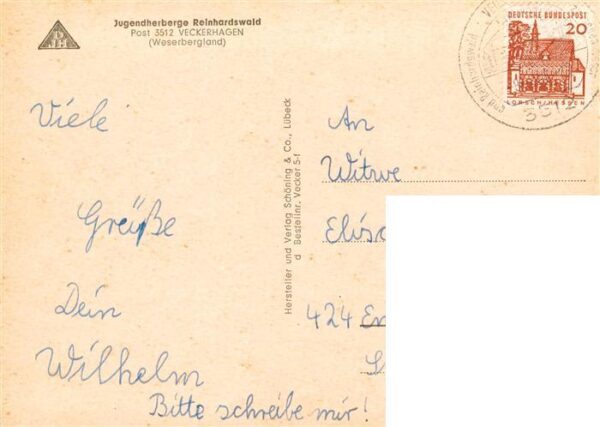 Jugendherberge Reinhardswald
Post 3512 VECKERHAGEN
(Weserbergland)
DEUTSCHE BUNDESPOST
20
LORSCH/HESSEN
3512
Viele
Greüße
Dein
Wilhelm
Bitte schreibe mir!
Hersteller und Verlag Schöning & Co., Lübeck
d Bestellnr. Vecker 5-f
An
Witwe
424